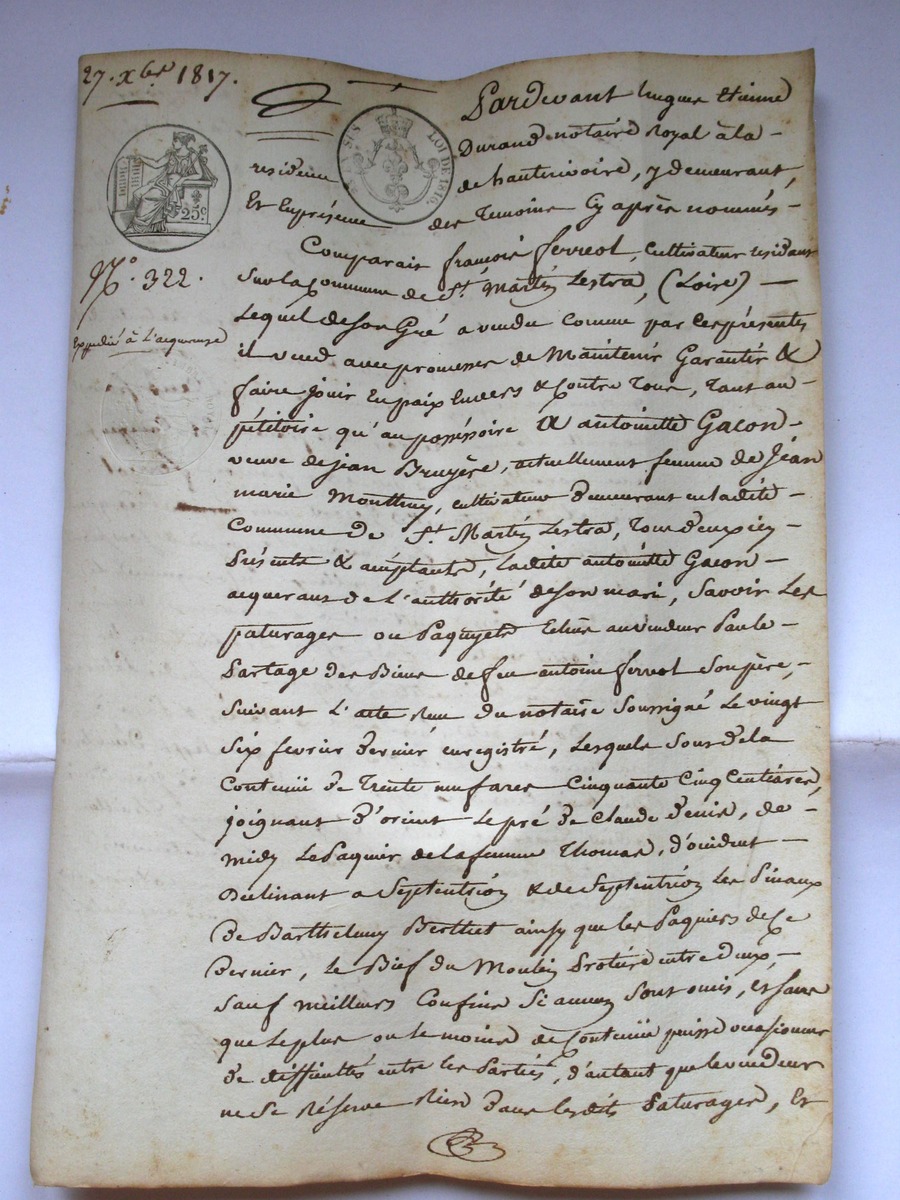 27. Xbre 1817.
Pardevant hugues Etienne
Durand notaire Royal à la
LOI DE 1816.
residence de hauterivoire, y demeurant,
Et En présence des Temoins Cy après nommés
25c
Comparait françois ferreol, Cultivateur residant
No. 322.
Sur la Commune de St. Martin Lestra, (Loire)
Lequel de son Gré a vendu comme par ces présentes
Expedié à L'acquereuse
il vend avec promesses de Maintenir Garantir &
faire jouir En paix Envers & Contre Tous, Tant au
pétitoire qu'au possessoire a antoinette Gacon
veuve de jean Bruyère, actuellement femme de Jean
marie Cultivateur demeurant en ladite
Commune De St. Martin Lestra, Tous deux icy
Présents & acceptants, Ladite antoinette Gacon
acquerant de L'authorité de son mari, Savoir Les
paturages ou Paquyets Echus au vendeur Par le
Partage des Biens de feu antoine ferreol Son père,
Suivant L'acte Reçu Du notaire Soussigné Le vingt
Six fevrier Dernier enregistré, Lesquels Sont de la
Contenüe De Trente neuf ares Cinquante Cinq Centiares,
joignant D'orient Le pré De Claude Denis, de
midy Le Paquier de la femme Thomas, d'occident
Déclinant a Septentrion & de Septentrion Les
De Barthelemy Berthet ainsy que les Paquiers de Ce
Dernier, Le Bief du Moulin entre deux,
Sauf meilleurs Confins Si aucuns Sont omis, et Sans
que Le plus ou le moins de Contenüe puisse occasioner
De difficultés entre les Parties, d'autant que le vendeur
ne Se Réserve Rien Dans lesdits Paturages, Et